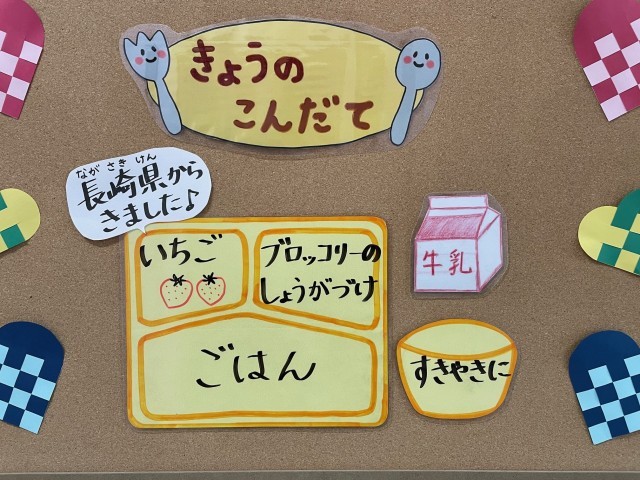 きょうの
こんだて
ながさきけん
長崎県から
きました♪
いちご
ブロッコリーの
しょうがづけ
ごはん
牛乳
すきやきに